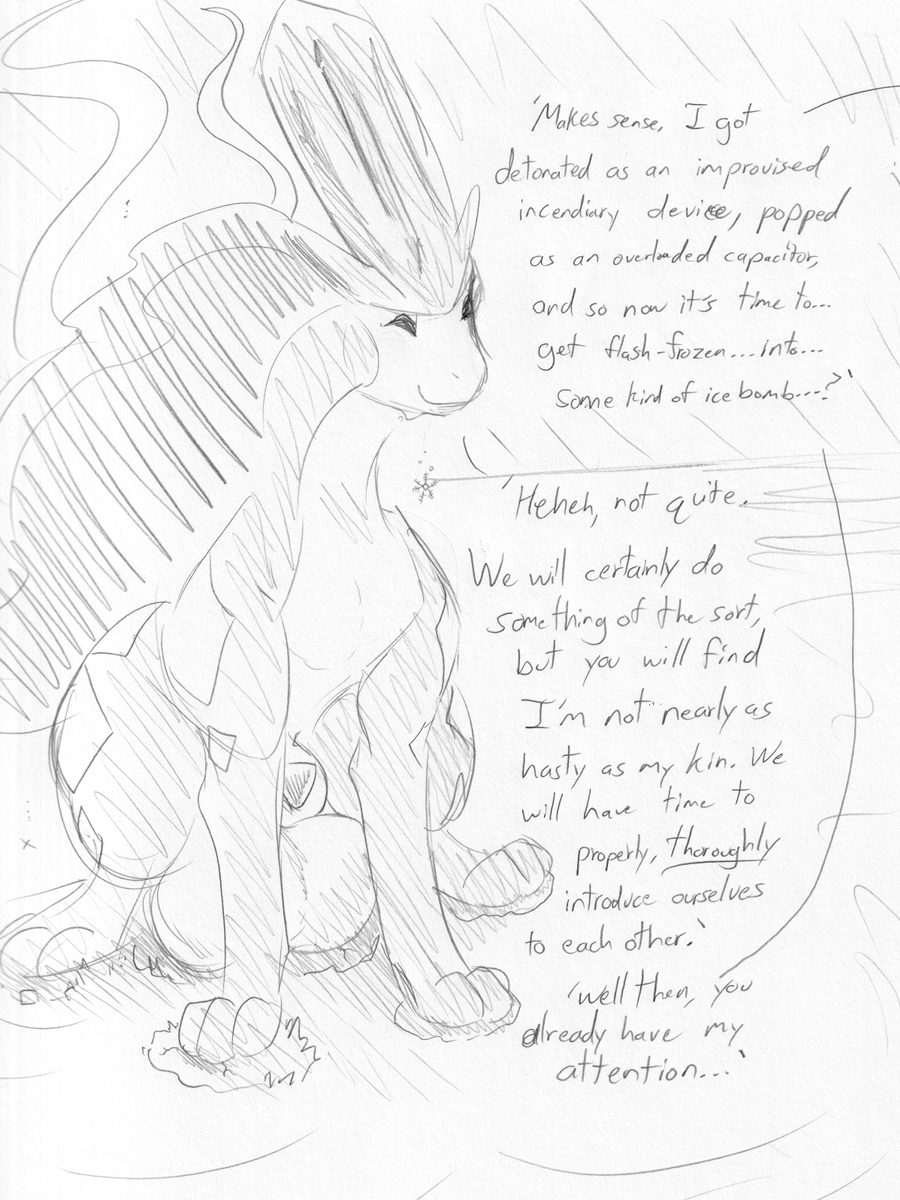 'Makes sense, I got
detonated as an improvised
incendiary device, popped
as an overloaded capacitor,
and so now it's time to...
get flash-frozen...into...
Some kind of ice bomb....?'
'Heheh, not quite.
We will certainly do
something of the sort,
but you will find
I'm not nearly as
hasty as my kin. We
will have time to
properly, thoroughly
introduce ourselves
to each other.'
'Well then, you
already have my
attention...'